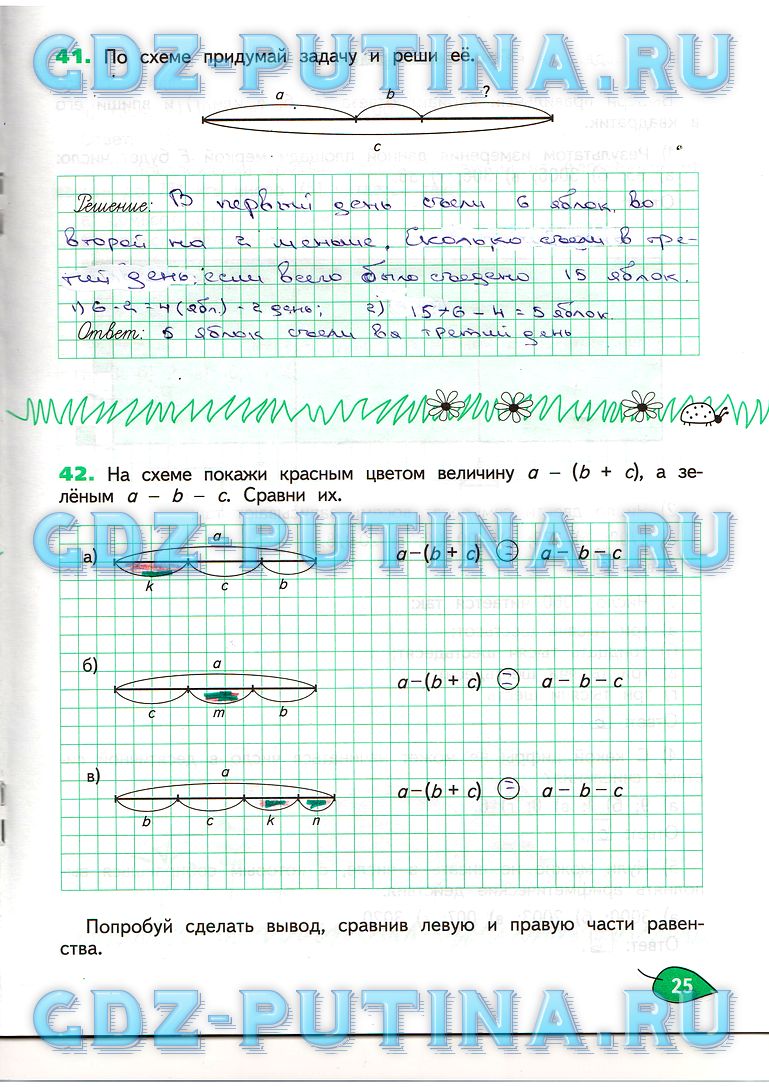 GDZ-PUTINA.RU
41. По схеме придумай задачу и реши её.
a b ?
c
Решение: В первый день съели 6 яблок, во
второй на 2 меньше. Сколько съели в тре-
тий день, если всего было съедено 15 яблок.
1) 6 - 2 = 4 (ябл.) - 2 день; 2) 15 + 6 - 4 = 5 яблок.
Ответ: 5 яблок съели в третий день
42. На схеме покажи красным цветом величину a – (b + c), а зе-
лёным a – b – c. Сравни их.
GDZ-PUTINA.RU
а) a a–(b + c) = a – b – c
k c b
б) a a–(b + c) = a – b – c
c m b
в) a a–(b + c) = a – b – c
b c k n
Попробуй сделать вывод, сравнив левую и правую части равен-
ства.
25
GDZ-PUTINA.RU